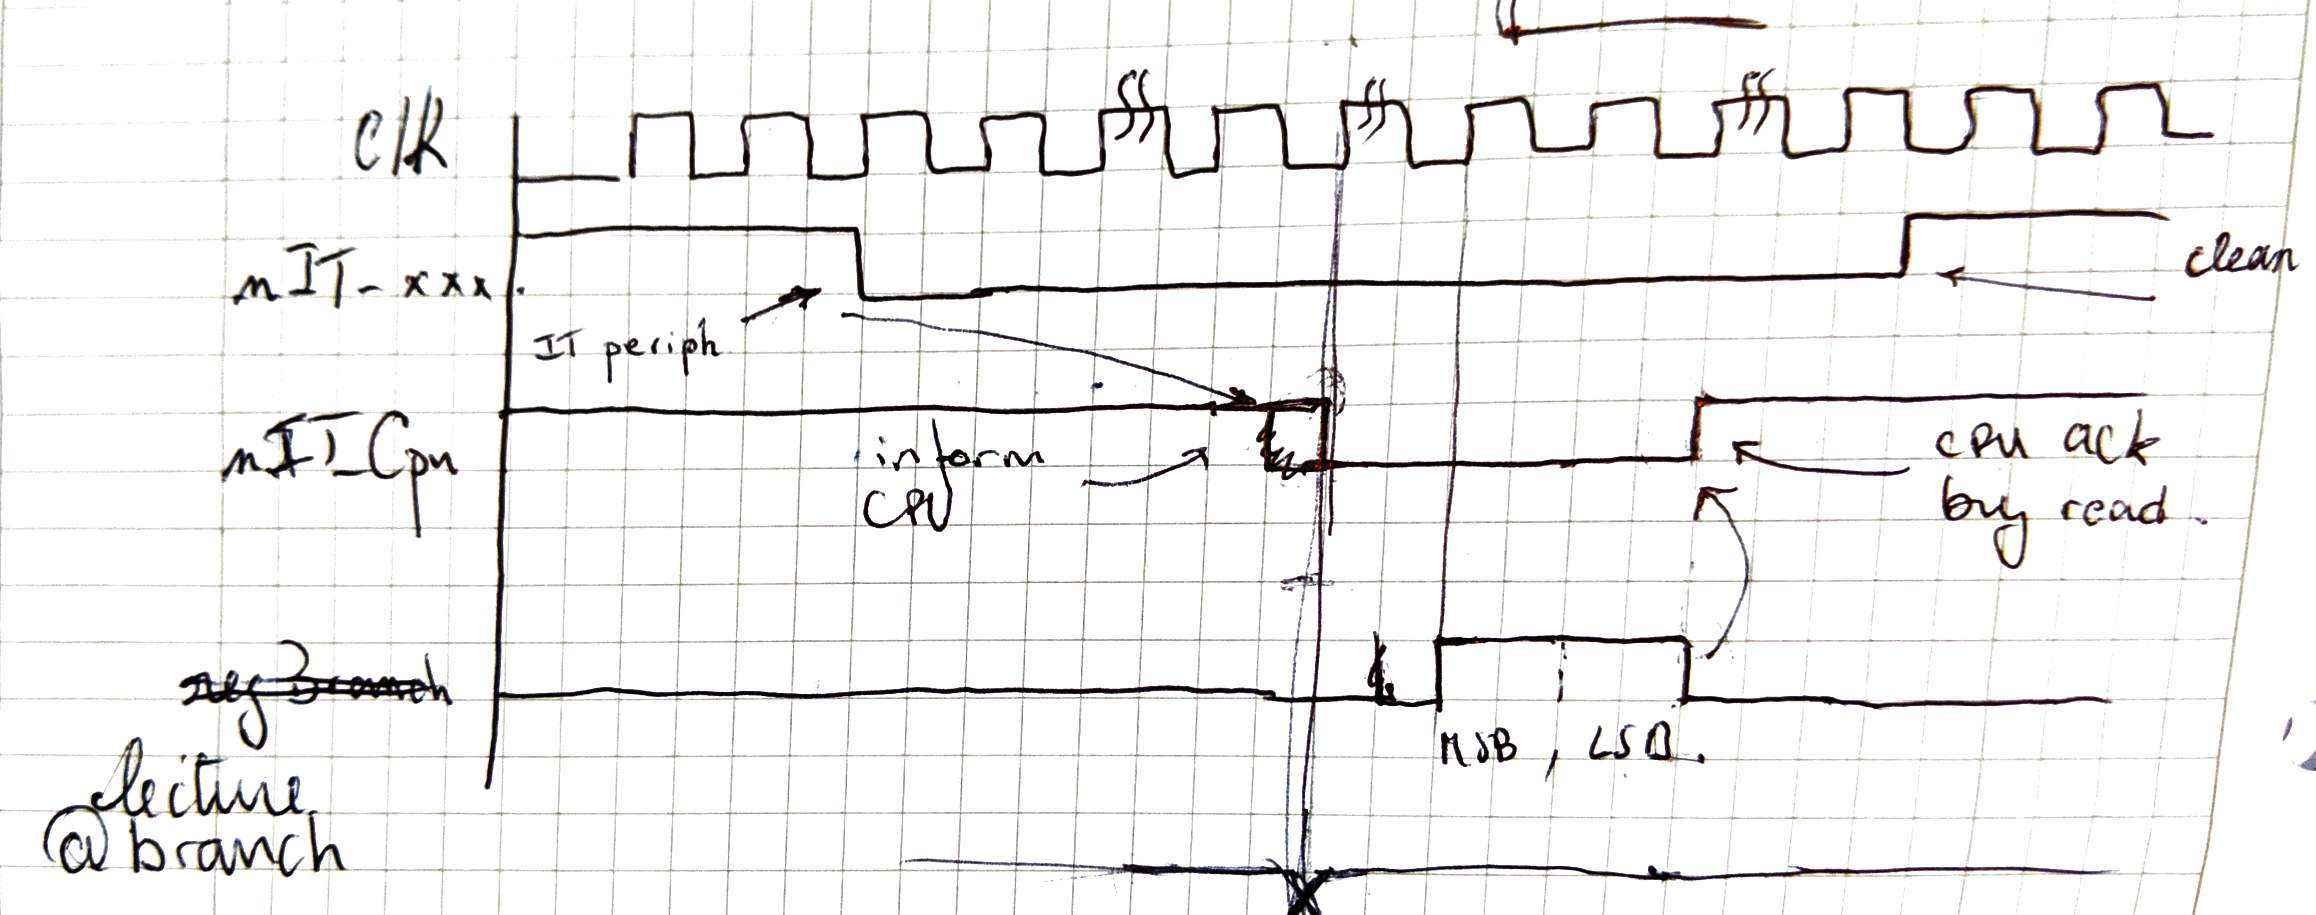 clk
nIT-xxx
clean
IT periph
nIT_Cpu
inform
CPU
CPU ack
by read.
reg Branch
MSB, LSB.
lecture
@branch